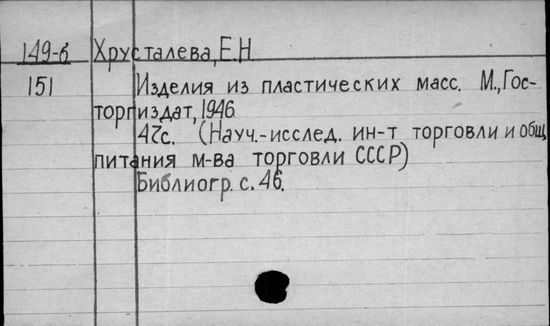 149-б Хрусталева, Е.Н.
151 Изделия из пластических масс. М., Гос-
торгиздат, 1946
47с. (Науч.-исслед. ин-т торговли и общ.
питания м-ва торговли СССР)
Библиогр. с. 46.